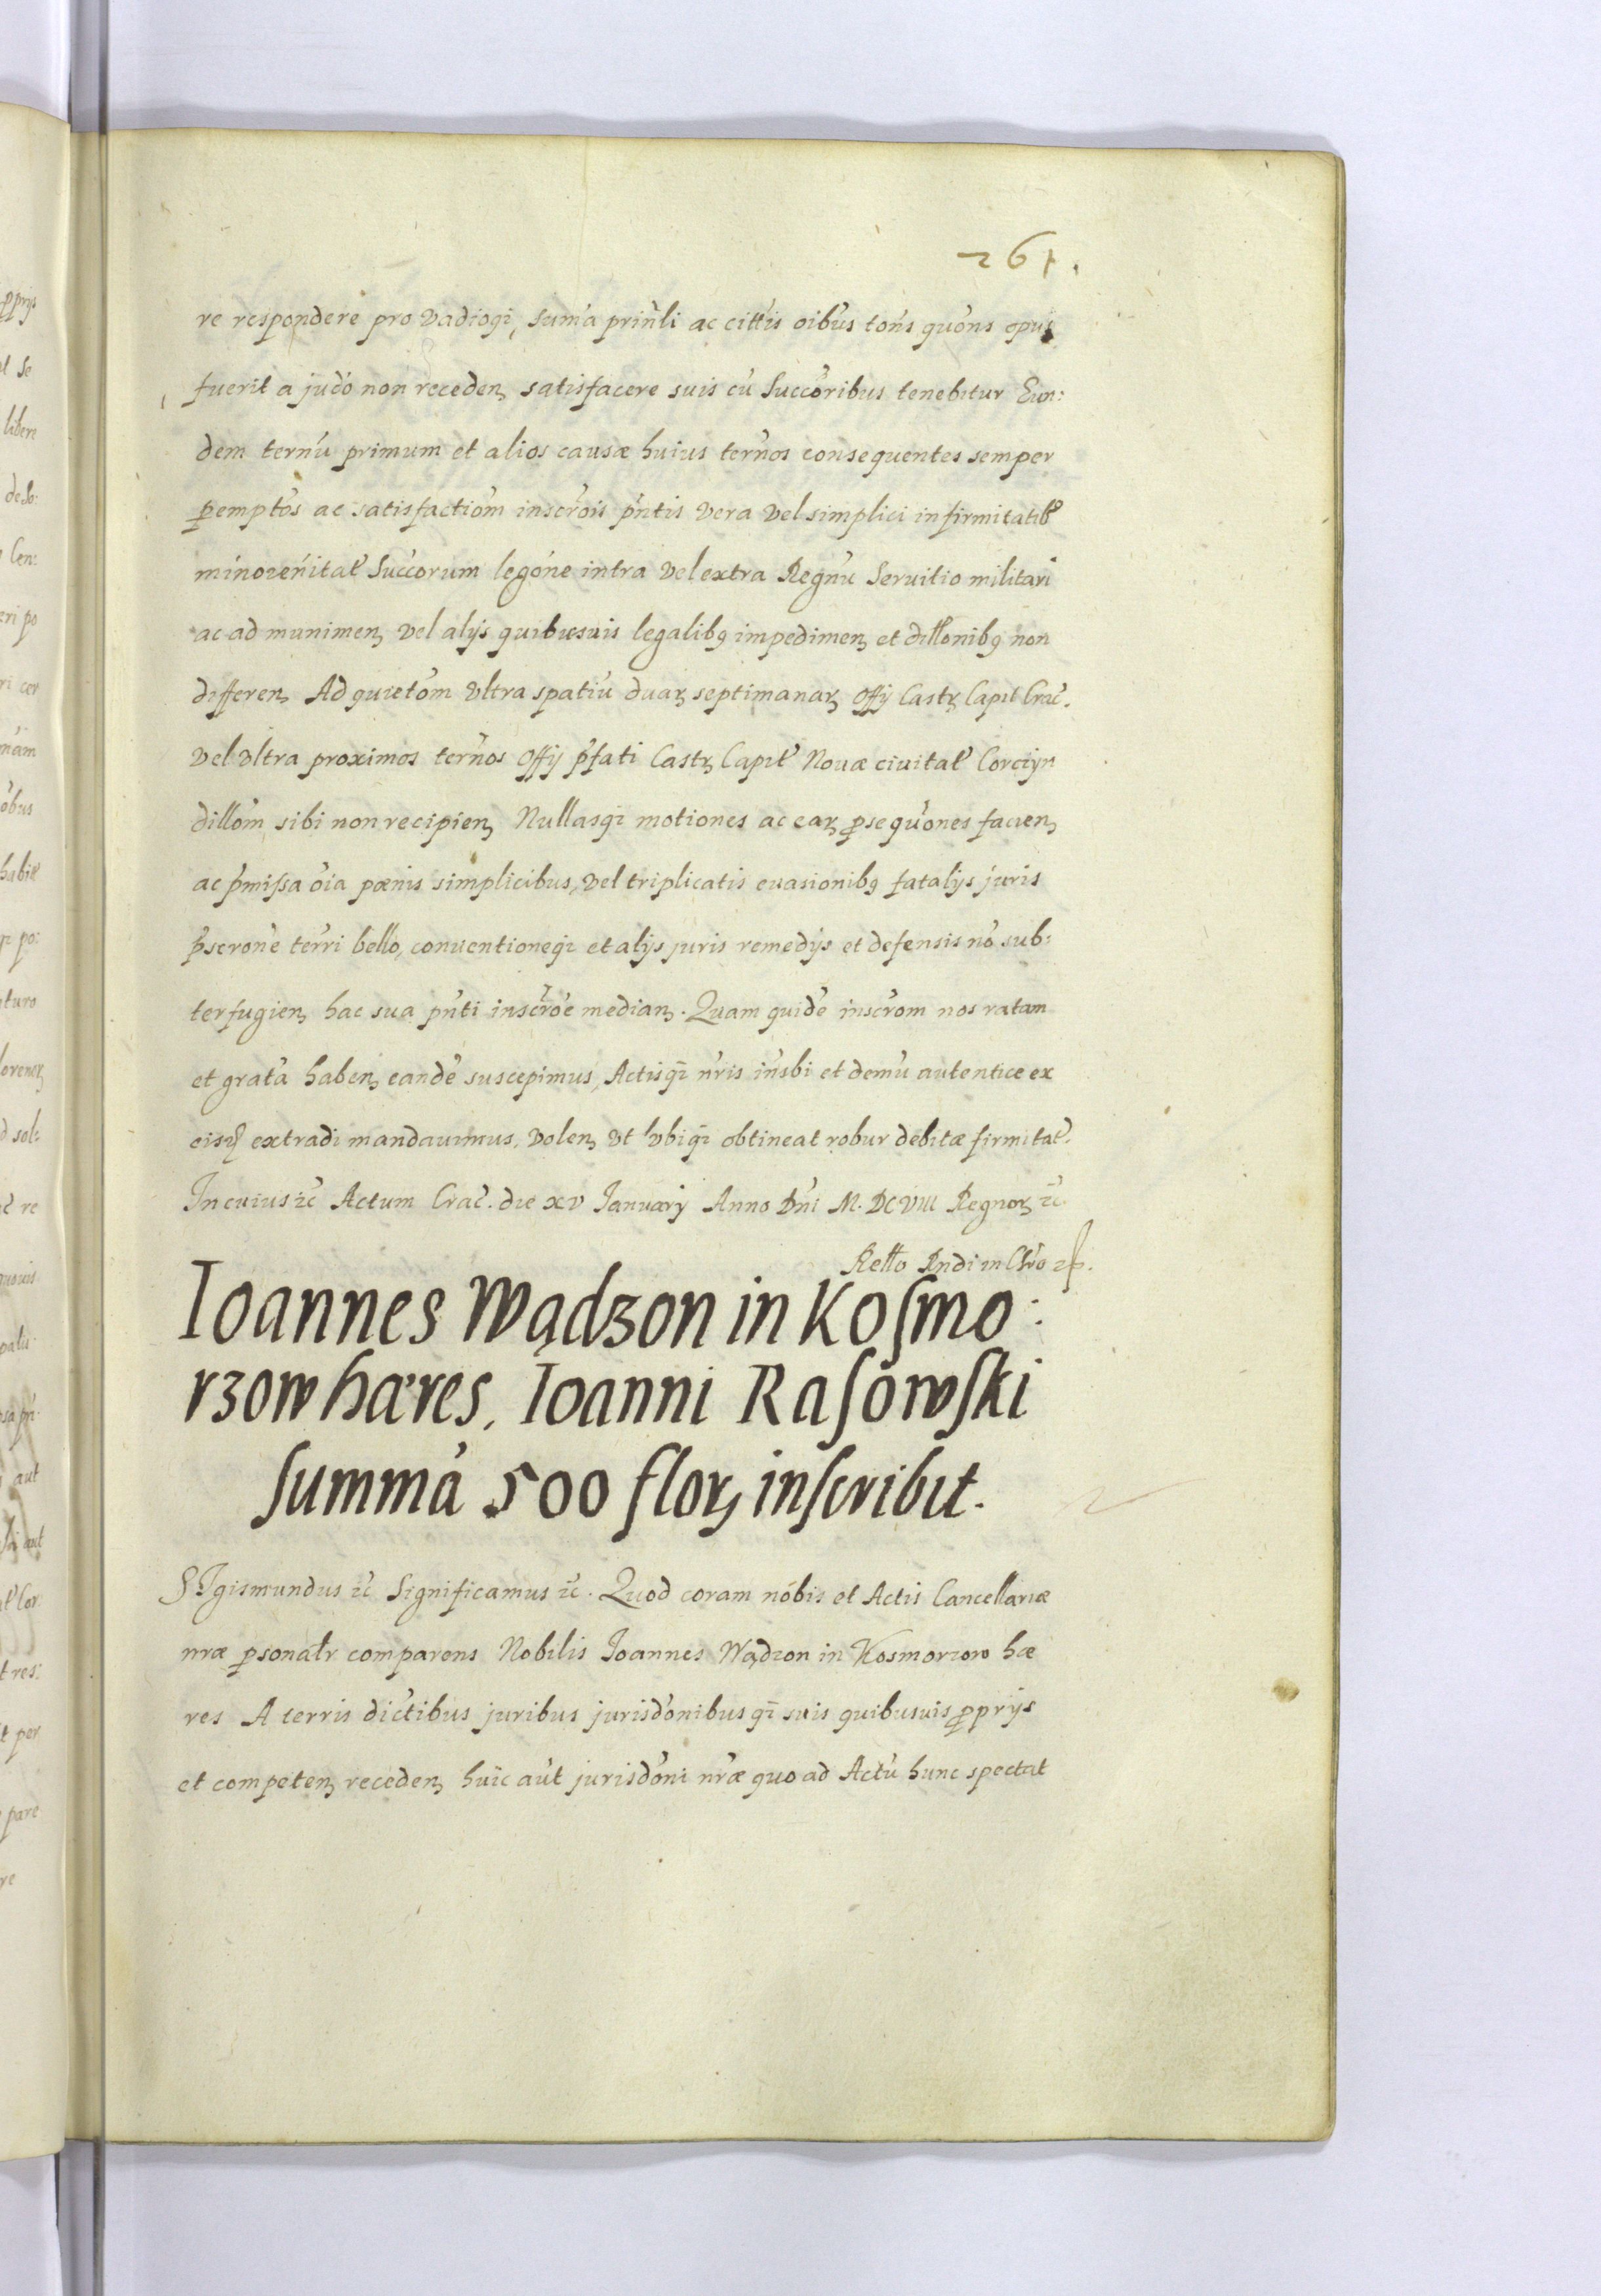 261.
re respondere pro vadioq₃, sum̃a prinl̃i ac cittis oib̃us tot̃ns quõns opus
fuerit a jud̃o non receden₃ satisfacere suis cũ Succõribus tenebitur Eun:
dem termĩu primum et alios causæ huius term̃os consequentes semper
ꝑempt̃os ac satisfactiõm inscr̃ois p̃ntis vera vel simplici infirmitatib₉
minoren̄itat̃ Succ̃orum legõne intra vel extra Regnũ Seruitio militari
ac ad munimen₃ vel alijs quibusuis legalib₉ impedimen₃ et dill̃onib₉ non
differen₃ Ad quietõm vltra spatiũ duar₃ septimanar₃ Offij Castr₃ Capit Crac̃.
vel vltra proximos term̃os Offij p̃fati Castr₃ Capit̃ Nouæ ciuitat̃ Corcijn
dill̃om sibi non recipien₃ Nullasq₃ motiones ac ear₃ ꝓsequũones facien₃
ac p̃missa õia pœnis simplicibus, vel triplicatis euasionib₉ fatalijs juris
p̃scrone ter̃ri bello, conuentioneq₃ et alijs juris remedijs et defensis nõ sub:
terfugien₃ hac sua p̃nti inscr̃oe median₃. Quam quidẽ inscr̃om nos ratam
et gratã haben₃ eandẽ suscepimus, Actisq₃ nr̃is iñsbi et demũ autentice ex
eisd̃ extradi mandauimus, volen₃ vt vbiq₃ obtineat robur debitæ firmitat̃.
In cuius &c̃ Actum Crac̃. die xv Januarij Anno Dñi M. DCVIII Regnor₃ &c̃.
Rel̃to Rndi in Chr̃o &c.
Ioannes Wądzon in Kosmo:
rzow hæres, Ioanni Rasowski
summã 500 flor₃ inscribit.
SIgismundus &c̃ Significamus &c̃. Quod coram nobis et Actis Cancellariæ
nr̃æ ꝑsonalr̃ comparens Nobilis Joannes Wądzon in Kosmorzow hæ
res A terris dict̃ibus juribus jurisd̃onibusq₃ suis quibusuis ꝓprijs
et competen₃ receden₃ huic aũt jurisd̃oni nr̃æ quo ad Actũ hunc spectat